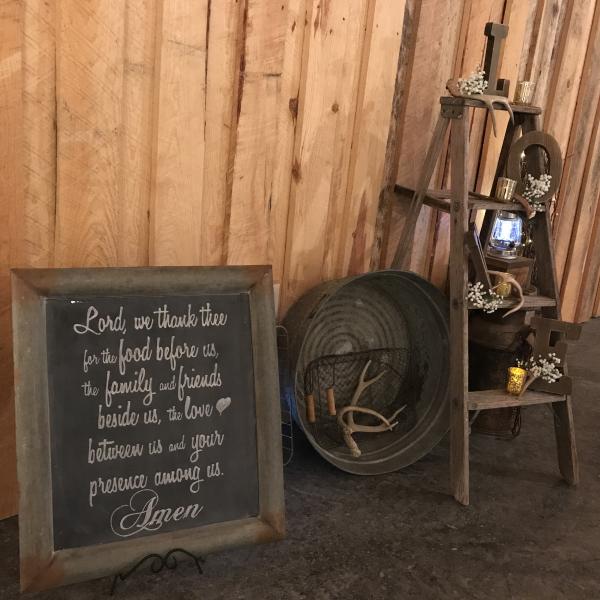 Lord, we thank thee
for the food before us,
the family and friends
beside us, the love
between us and your
presence among us.
Amen
L
O
V
E